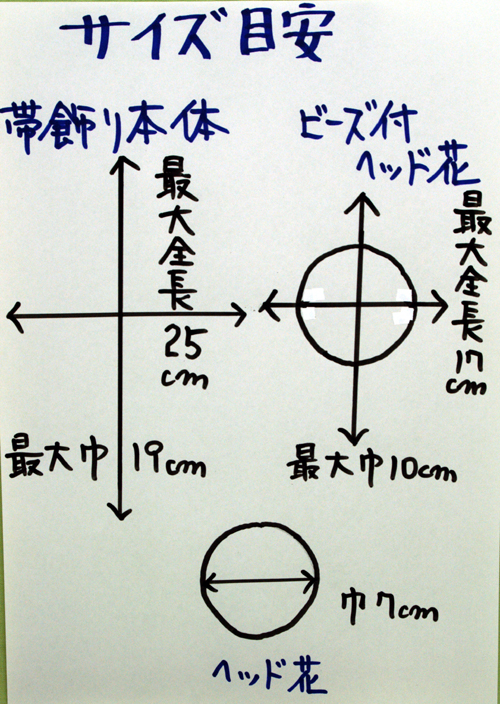 サイズ目安
帯飾り本体
最大全長
25
cm
最大巾 19cm
ビーズ付
ヘッド花
最大全長17
cm
最大巾10cm
巾7cm
ヘッド花